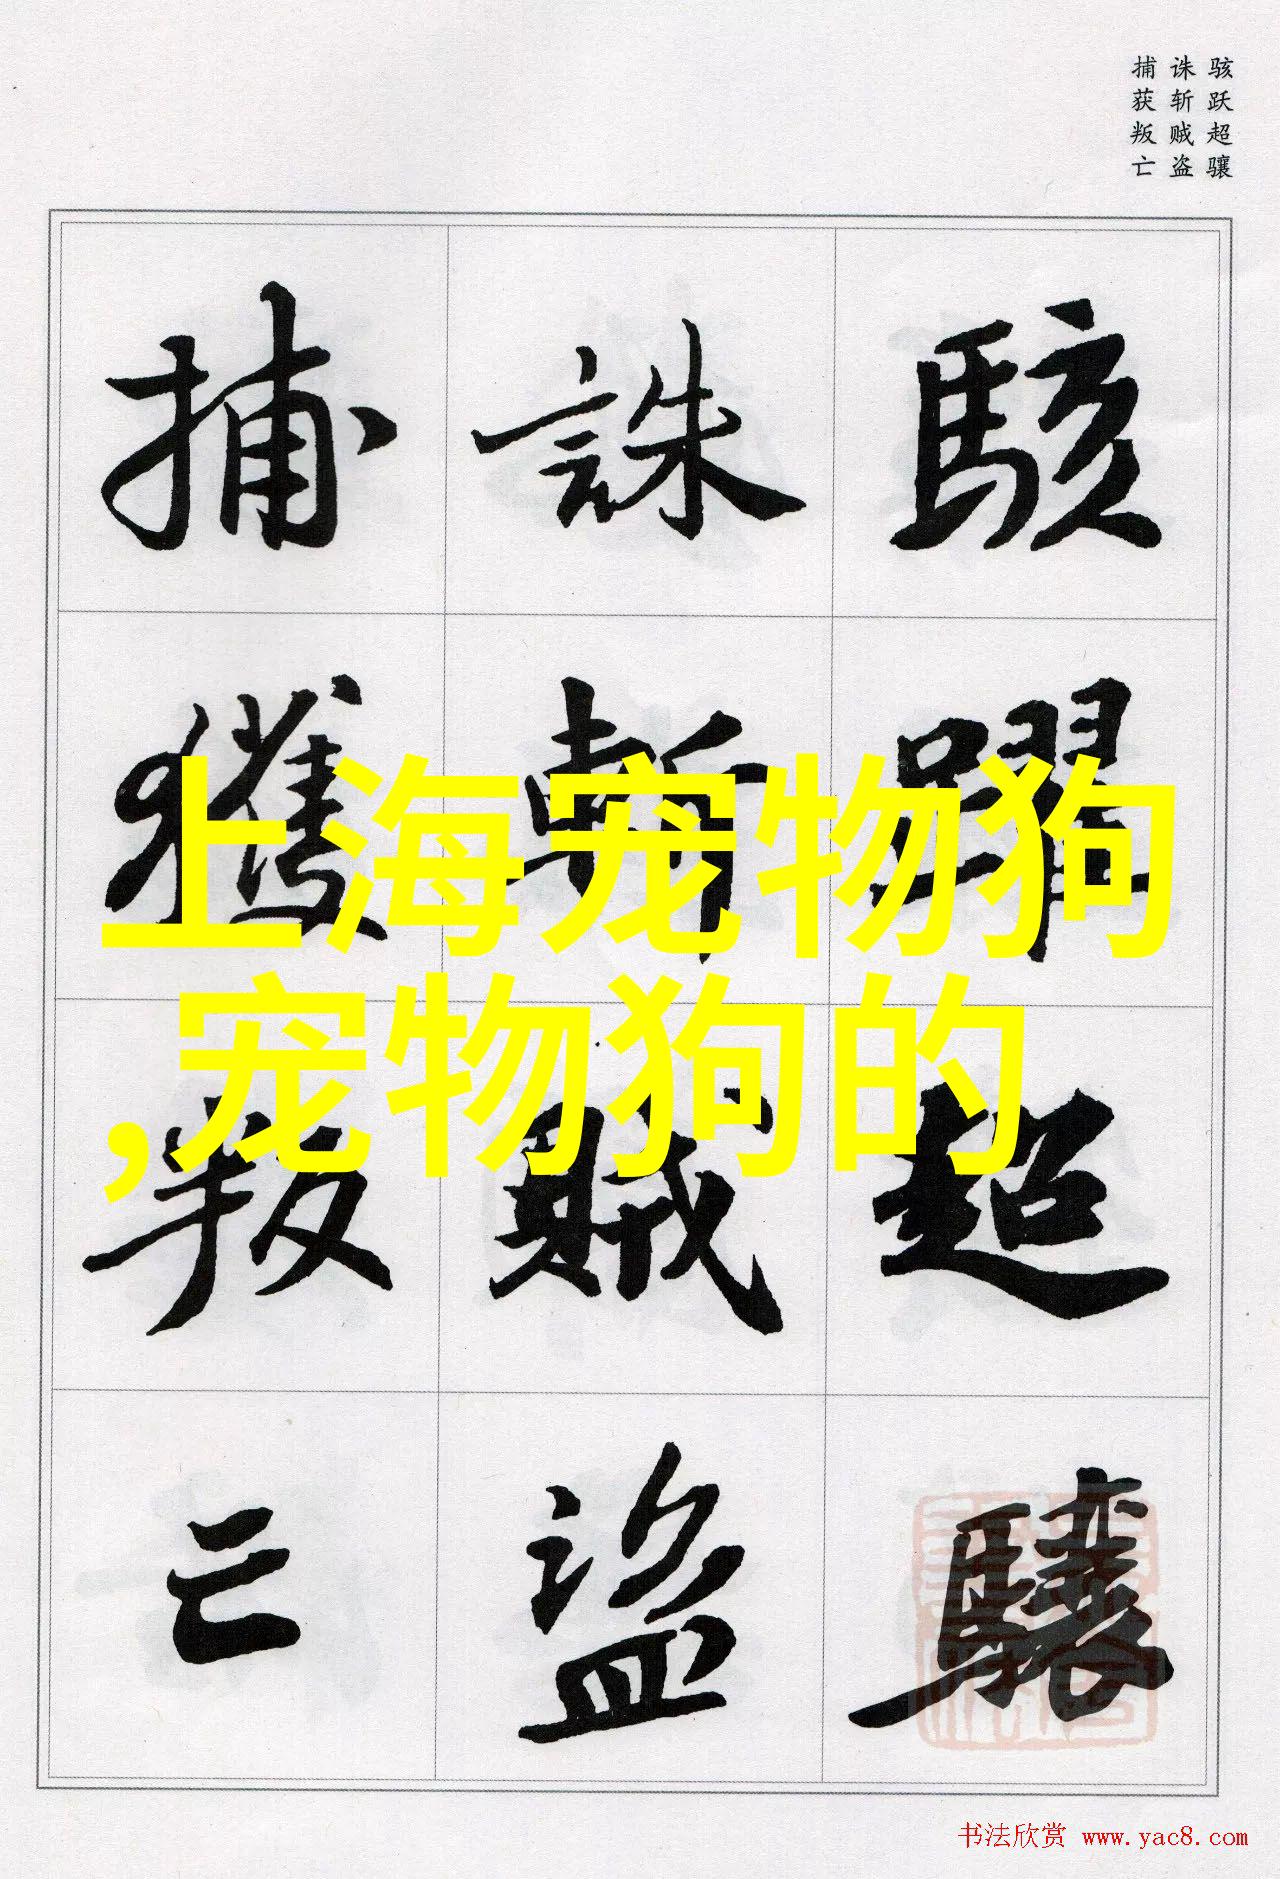 骇跃超骧
诛斩贼盗
捕获叛亡
駭躍超驤
誅斬賊盜
捕獲叛亡
上海宠物狗
,宠物狗的
书法欣赏 www.yac8.com